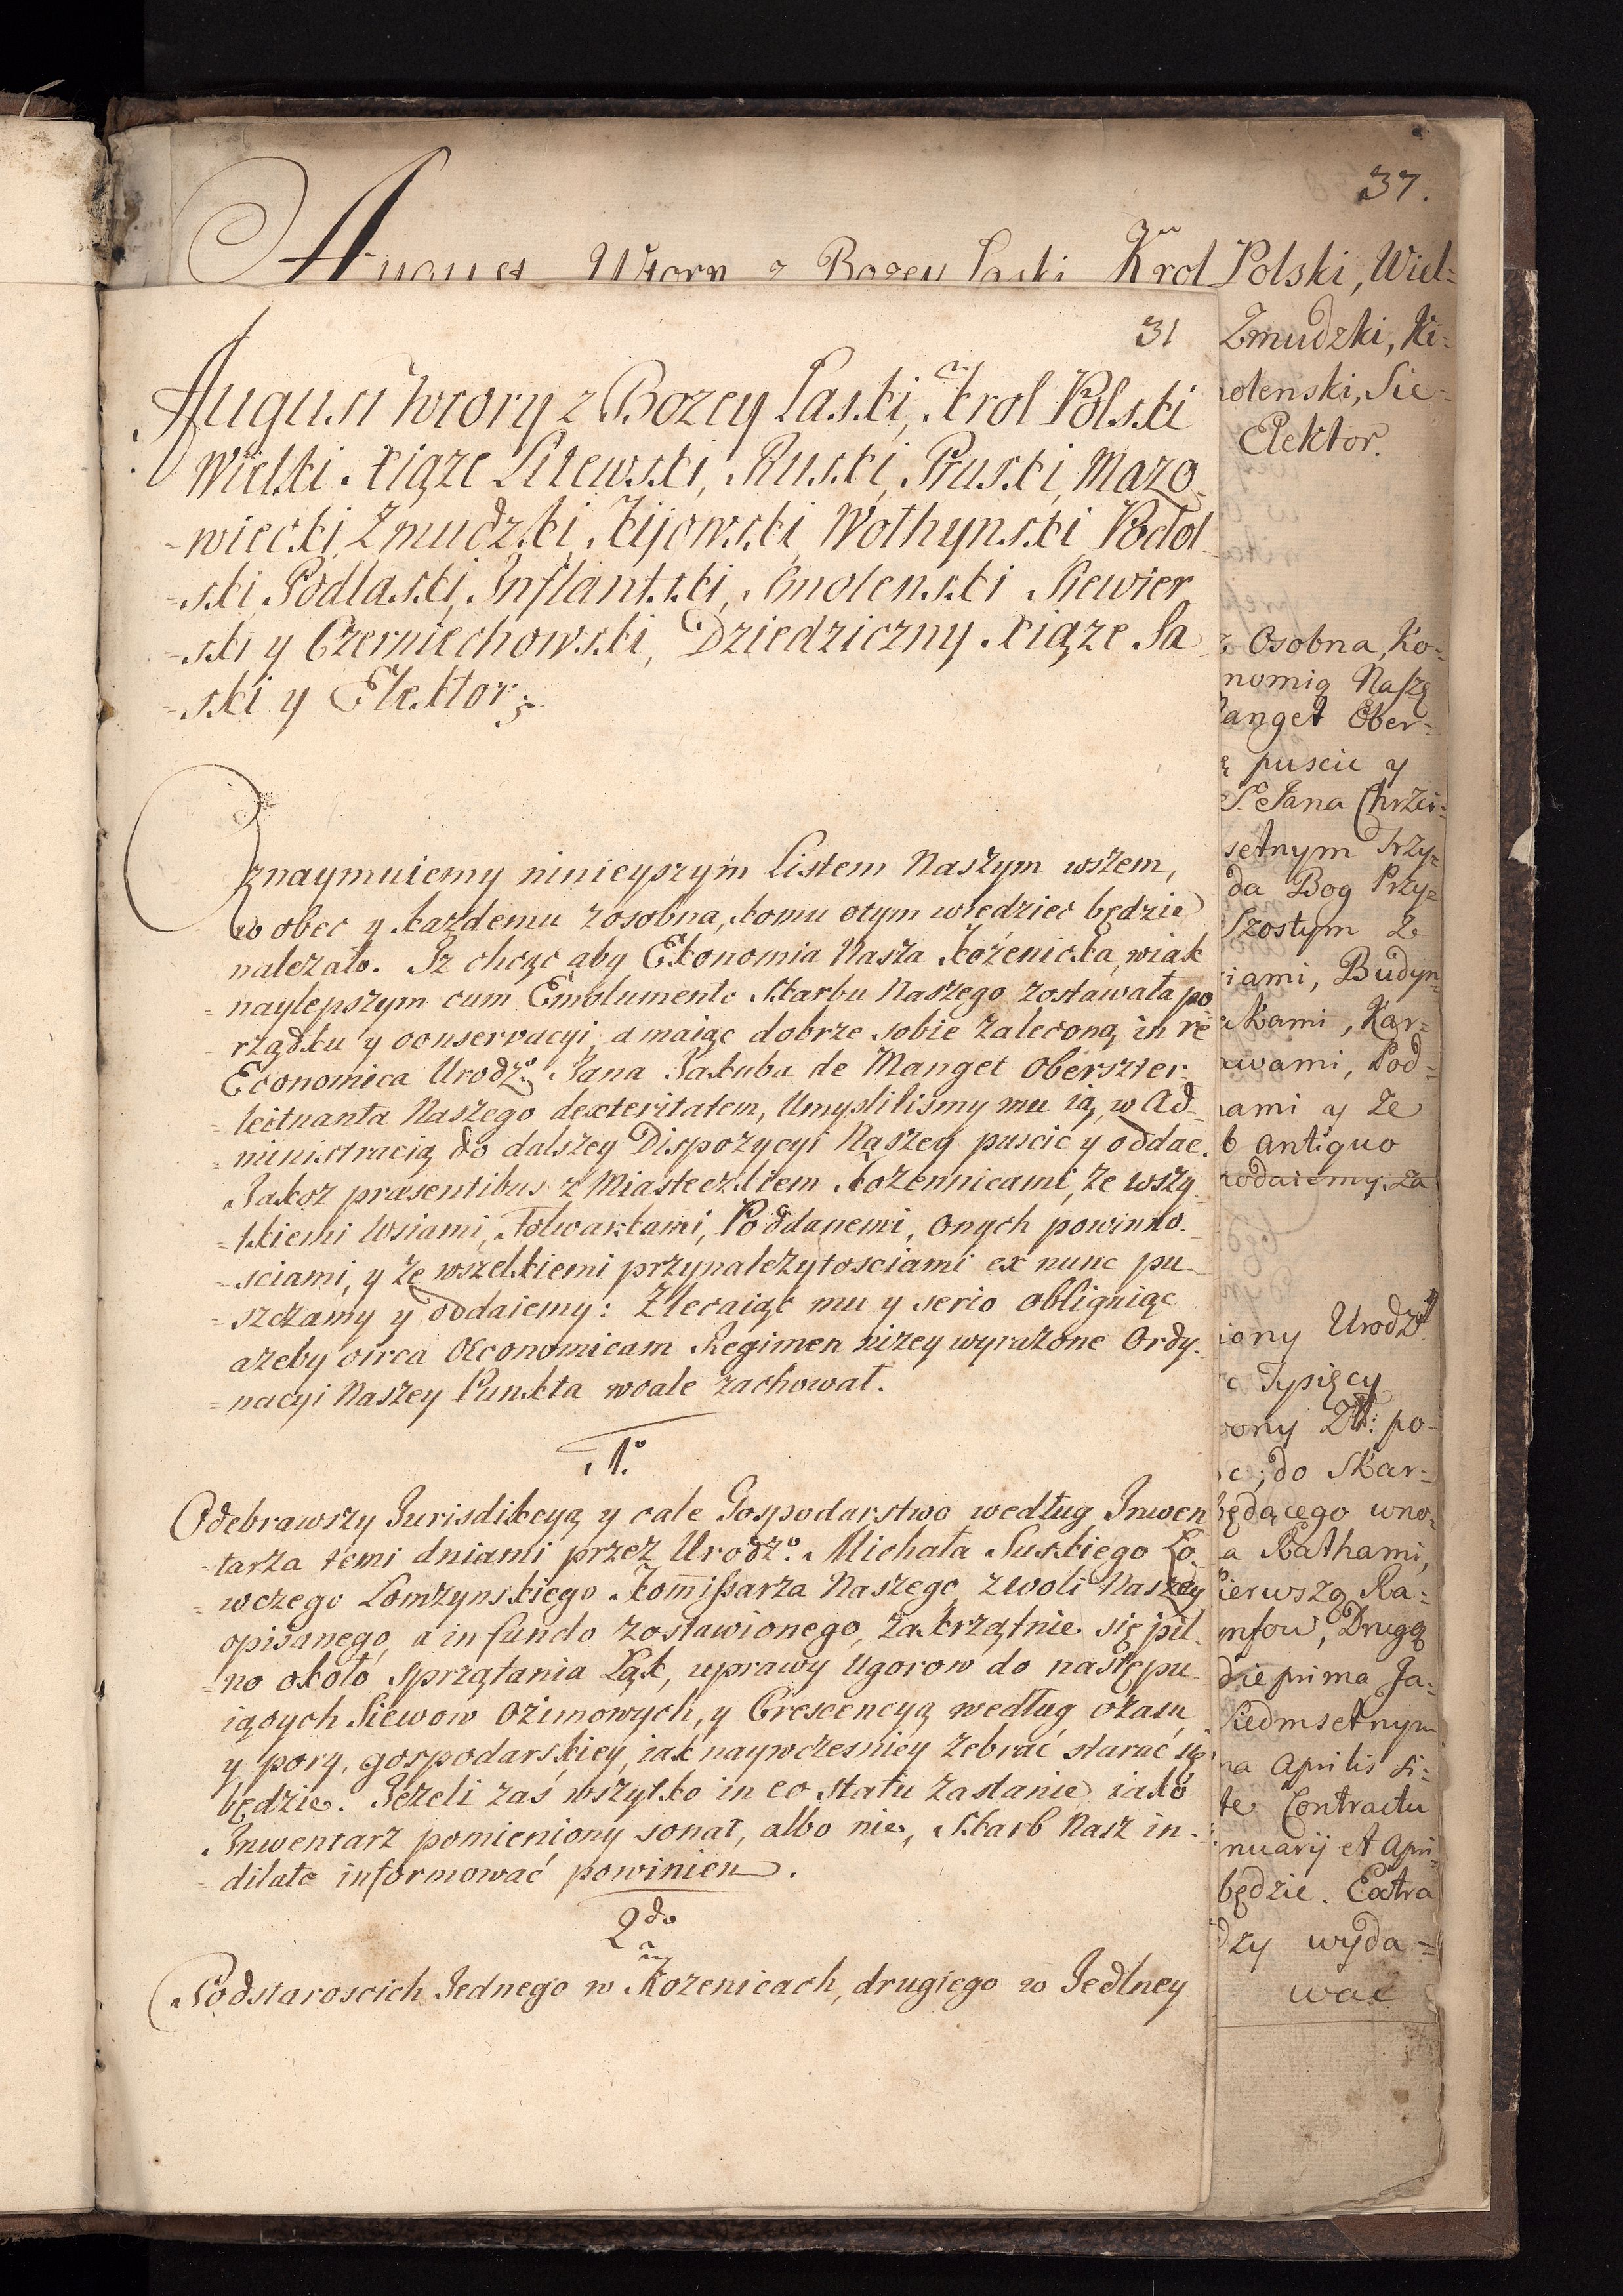 37.
August Wtory z Bozey Łaski Krol Polski, Wiel=
31
August Wtory z Bozey Łaski, Krol Polski
Wielki Xiąze Litewski, Ruski, Pruski, Mazo
-wiecki, Zmudzki, Kijowski, Wołhynski, Podol
-ski, Podlaski, Inflantski, Smolenski Siewier
-ski y Czerniechowski, Dziedziczny Xiąze Sa
-ski y Elektor;
Oznaymuiemy ninieyszym Listem Naszym wszem,
w obec y kazdemu zosobna, komu otym wiedziec będzie
nalezało. Iz chcąc aby Ekonomia Nasza Kozenicka, wiak
= naylepszym cum Emolumento Skarbu Naszego zostawała po
- rządku y conservacyi, a maiąc dobrze sobie zaleconą in re
Economica Urodz.o Jana Jakuba de Manget Oberszter
- leitnanta Naszego dexteritatem, Umyslilismy mu ią, w Ad-
= ministracią do dalszey Dispozycyi Naszey puscic y oddac.
Jakoz præsentibus z Miasteczkiem Kozennicami, ze wszy
- tkiemi Wsiami, Folwarkami, Poddanemi, onych powinno-
- sciami, y ze wszelkiemi przynalezytosciami ex nunc pu-
- szczamy y oddaiemy: Zlecaiąc mu y serio obliguiąc
azeby circa Œconomicam Regimen nizey wyrazone Ordy-
= nacyi Naszey Punkta wcale zachował.
1.o
Odebrawszy Jurisdikcyą y cale Gospodarstwo według Inwen
- tarza temi dniami przez Urodz.o Michała Suskiego Ło-
- wczego Łomzynskiego Kommissarza Naszego, z woli Naszey
opisanego, a in fundo zostawionego, zakrzątnie się pil
- no około sprzątania Łąk, uprawy Ugorow do następu-
iących Siewow Ozimowych, y Crescencyą według czasu
y pory, gospodarskiey, iak naywczesniey zebrać starać się
będzie. Jezeli zas wszytko in eo statu zastanie iako
Inwentarz pomieniony sonat, albo nie, Skarb Nasz in-
- dilate informować powinien.
2do
Podstaroscich Jednego w Kozenicach, drugiego w Jedlney
Zmudzki, Ki=
olenski, Sie=
Elektor.
Osobna, Ko=
nomią Naszą
anget Ober=
puscic y
S. Jana Chrzci=
setnym Trzy=
da Bog Przy=
Szostym Z
iami, Budyn
kami, Kar=
wami, Pod=
ami y ze
b antiquo
odaiemy. Za
iony Urodz
c Tysięcy
ony Zł: po=
c; do Skar=
będącego wno=
a Rathami,
ierwszą Ra=
ynfow, Drugą
die prima Ja=
Siedmsetnym
ma Aprilis si=
te Contractu
nuarij et Apri=
będzie. Extra
dzy wyda=
wac